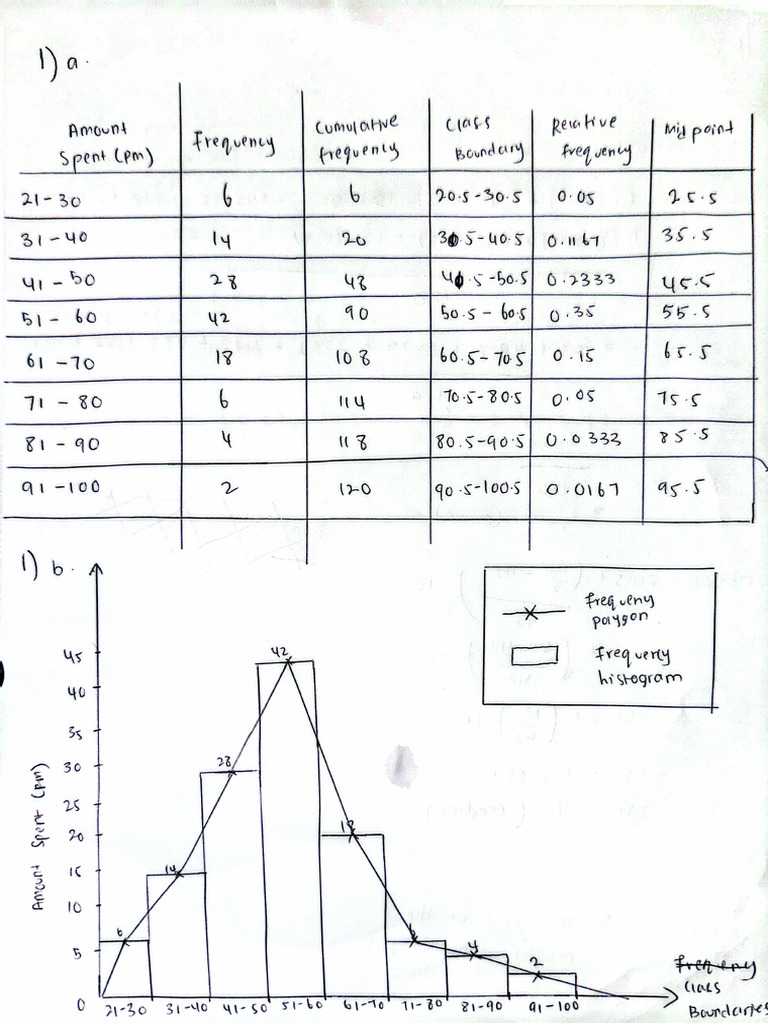 1) a.
Amount Spent (pm) Frequency Cumulative frequency Class Boundary Relative frequency Mid point
21-30 6 6 20.5-30.5 0.05 25.5
31-40 14 20 30.5-40.5 0.1167 35.5
41-50 28 48 40.5-50.5 0.2333 45.5
51-60 42 90 50.5-60.5 0.35 55.5
61-70 18 108 60.5-70.5 0.15 65.5
71-80 6 114 70.5-80.5 0.05 75.5
81-90 4 118 80.5-90.5 0.0333 85.5
91-100 2 120 90.5-100.5 0.0167 95.5
1) b.
Frequeny
paygon
Frequeny
histogram
Amount Spent (pm)
45
40
35
30
25
20
15
10
5
0
6
14
28
42
18
4
2
21-30 31-40 41-50 51-60 61-70 71-80 81-90 91-100
Frequeny
Class
Boundaries